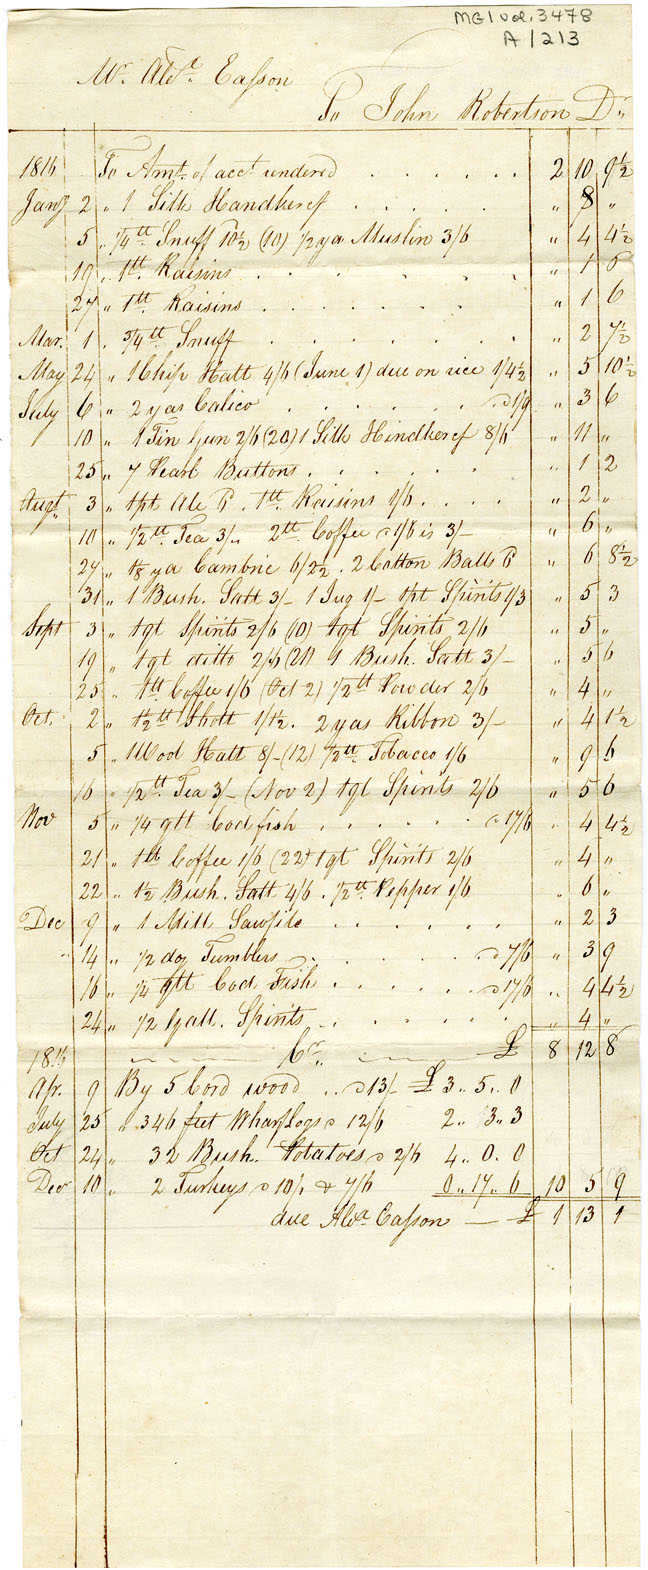 MG1 Vol. 3478
A/213
Mr. Alexr. Easson
To John Robertson Dr.
1816 To Amt. of acct rendered 2 10 9½
Jany 2 " 1 Silk Handkercf " 8 "
5 " ¼ tt Snuff 10½ (10) ½ ya Muslin 3/6 " 4 4½
19 " 1tt Raisins " 1 6
27 " 1tt Raisins " 1 6
Mar. 1 " ¾ tt Snuff " 2 7½
May 24 " 1 Chip Hatt 4/6 (June 1) due on rice 1/4½ " 5 10½
July 6 " 2 yas Calico @ 1/9 " 3 6
10 " 1 Tin Gun 2/6 (20) 1 Silk Hindkercf 8/6 " 11 "
25 " 7 Pearl Buttons " 1 2
Augt. 3 " 1pt Ale 6. 1tt Raisins 1/6 " 2 "
10 " ½ tt Tea 3/. 2tt Coffee @ 1/6 is 3/- " 6 "
27 " ya Cambric 6/2½ . 2 Cotton Balls 6 " 6 8½
31 " 1 Bush. Salt 3/- 1 Jug 1/- 1pt Spirits 1/3 " 5 3
Sept 3 " 1qt Spirits 2/6 (10) 1qt Spirits 2/6 " 5 "
19 " 1qt ditto 2/6 (21) 1 Bush. Salt 3/- " 5 6
25 " 1tt Coffee 1/6 (Oct 2) ½ tt Powder 2/6 " 4 "
Oct. 2 " 1½ tt Shott 1/1½. 2 yas Ribbon 3/- " 4 1½
5 " 1 Wool Hatt 8/- (12) ½ tt Tobacco 1/6 " 9 6
16 " ½ tt Tea 3/- (Nov 2) 1qt Spirits 2/6 " 5 6
Nov 5 " ¼ qtt Codfish @ 17/6 " 4 4½
21 " 1tt Coffee 1/6 (22) 1qt Spirits 2/6 " 4 "
22 " 1½ Bush. Salt 4/6 . ½ tt Pepper 1/6 " 6 "
Dec 9 " 1 Mill Sawfile " 2 3
14 " ½ doz Tumblers @ 7/6 " 3 9
16 " ¼ qtt Cod Fish @ 17/6 " 4 4½
24 " ½ Gall. Spirits " 4 "
1816 Cr. £ 8 12 8
Apr. 9 By 5 Cord wood @ 13/- £ 3 .. 5 .. 0
July 25 " 346 feet Wharf Logs @ 12/6 2 .. 3 .. 3
Oct 24 " 32 Bush. Potatoes @ 2/6 4 .. 0 .. 0
Decr 10 " 2 Turkeys @ 10/. & 7/6 0 .. 17 .. 6 10 5 9
due Alexr Easson — £ 1 13 1